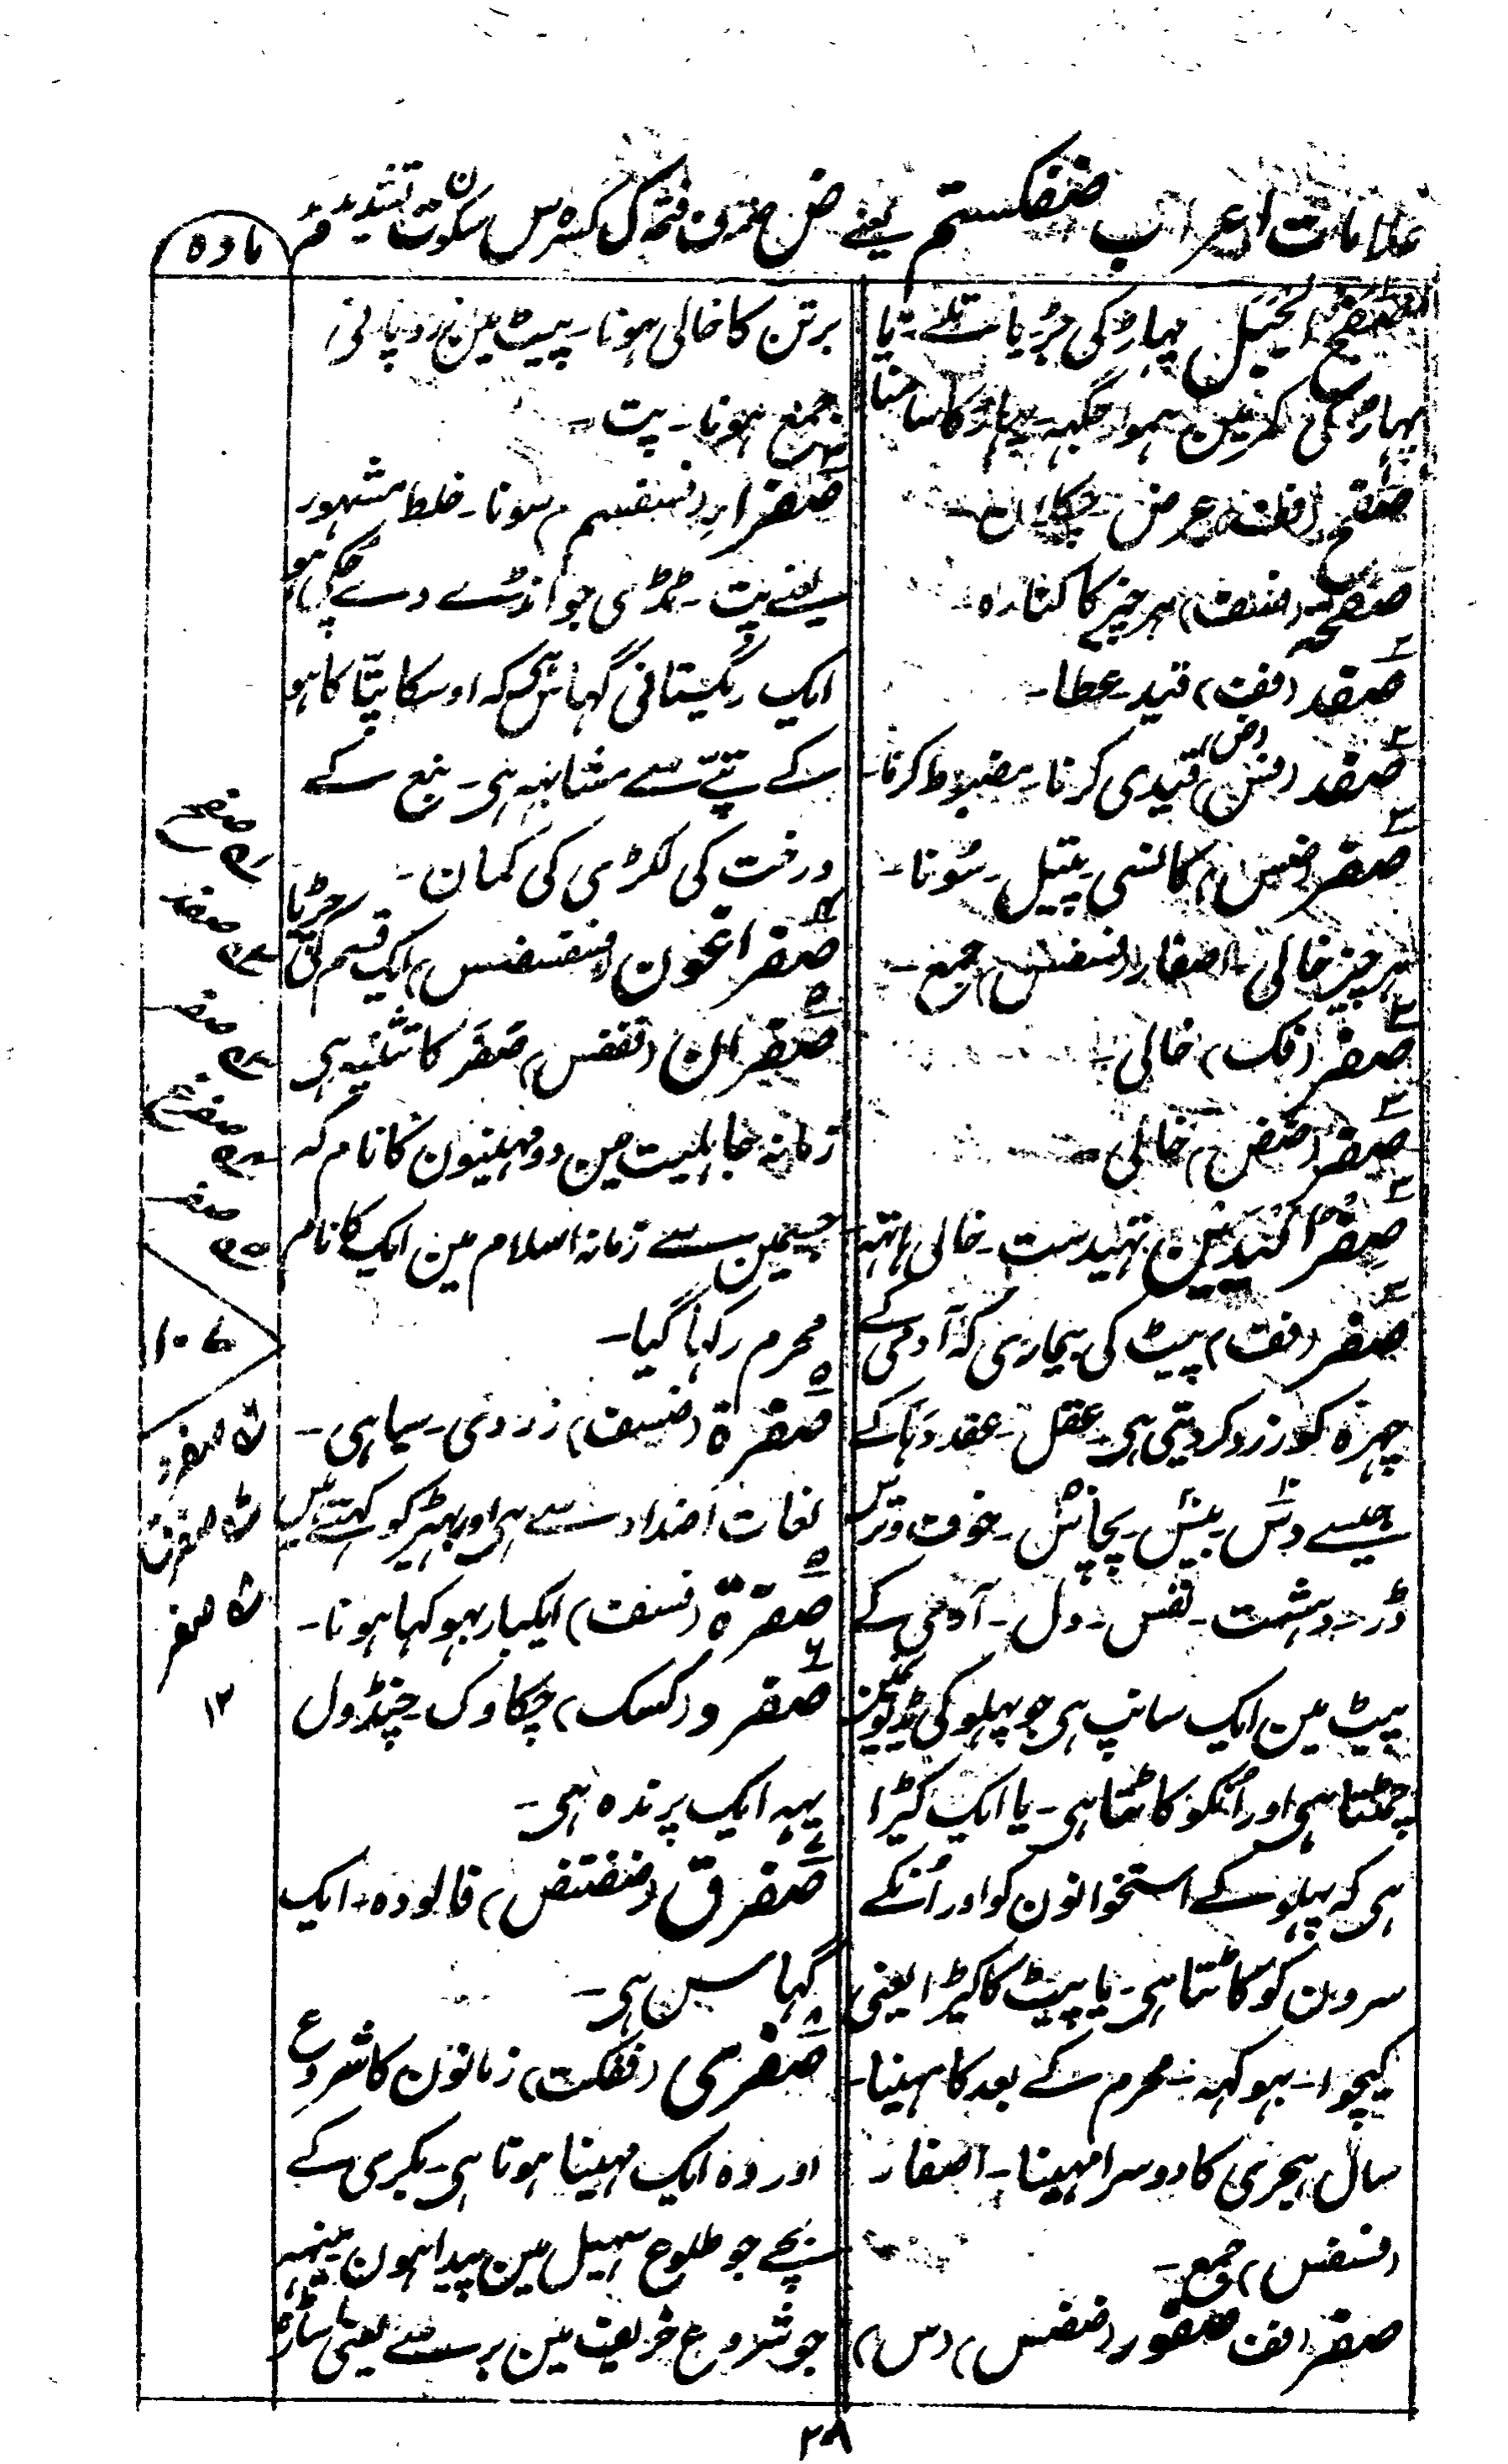 علامات اعراب ضفکستم یعنے ض ضمہ ف فتحہ ک کسرہ س سکون ت تشدید م مد
مادہ
صَفْحُ الجَبَل پہاڑ کی جڑ یا تلے۔ یا
پہاڑ کی کمر مین ہموار جگہہ۔ پہاڑ کا سامنا
صفح (فت) عرض۔ چکلان۔
صفحۃ (فسف) ہر چیز کا کنارہ
صفد (فف) قید۔ عطا۔
صفد (فس) (ض) قیدی کرنا۔ مضبوط کرنا۔
صفر (ضس) کانسی۔ پیتل۔ سونا۔
ہر چیز خالی۔ اصفار (فسفس) جمع۔
صفر (فک) خالی۔
صفر (ضض) خالی۔
صفر الیدین تہیدست۔ خالی ہاتہہ۔
صفر (فف) پیٹ کی بیماری کہ آدمی کے
چہرہ کو زرد کر دیتی ہی۔ عقل۔ عقد دہاکے
جیسے دس بیس پچاس۔ خوف و ترس
ڈر۔ دہشت۔ نفس۔ دل۔ آدمی کے
پیٹ مین ایک سانپ ہی جو پہلو کی ہڈیونمین
چمٹتا ہی اور اُنکو کاٹتا ہی۔ یا ایک کیڑا
ہی کہ پہلو کے استخوانون کو اور اُنکے
سرون کو کاٹتا ہی۔ یا پیٹ کا کیڑا یعنی
کیچوا۔ بہوکہہ۔ محرم کے بعد کا مہینا۔
سال ہجری کا دوسرا مہینا۔ اصفار
(فسفس) جمع۔
صفر (فف) صفور (ضضس) (س)
برتن کا خالی ہونا۔ پیٹ مین زرد پانی
جمع ہونا۔ پت۔
صفراء (فسفسم) سونا۔ خلط مشہور
یعنے پت۔ ٹڈی جو انڈے دے چکی ہو
ایک ریگستانی گہاس ہی کہ اوسکا پتّا کاہو
کے پتّے سے مشابہہ ہی۔ نبع کے
درخت کی لکڑی کی کمان۔
صفراغون (فسفسضس) ایک قسم کی چڑیا
صفران (فففس) صَفَر کا تثنیہ ہی
زمانہ جاہلیت مین دو مہینون کا نام کہ
جسمین سے زمانہ اسلام مین ایک کا نام
محرم رکہا گیا۔
صفرۃ (ضسف) زردی۔ سیاہی۔
لغات اضداد سے ہی اور بہیڑ کو کہتے ہیں
صفرۃ (فسف) ایکبار بہوکہا ہونا۔
صفرد (کسک) چکاوک۔ چنڈول
یہہ ایک پرندہ ہی۔
صفرق (ضفتض) فالودہ۔ ایک
گہاس ہی۔
صفری (ففکت) زمانون کا شروع
اور وہ ایک مہینا ہوتا ہی۔ بکری کے
بچے جو طلوع سہیل مین پیدا ہون۔ مینہہ
جو شروع خریف مین برسے یعنی
صفح
صفد
صفر
صفح
صفر
صفرد
صفرق
صفر
۱۲
۲۸